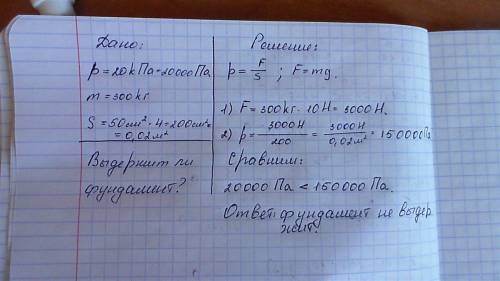 Дано:
p = 20 кПа = 20000 Па
m = 300 кг
S = 50 см² · 4 = 200 см² =
= 0,02 м²
Выдержит ли
фундамент?
Решение:
p = F/S ; F = mg.
1) F = 300 кг · 10 Н = 3000 Н.
2) p = 3000 Н/200 = 3000 Н/0,02 м² = 150000 Па
Сравним:
20000 Па < 150000 Па.
Ответ: фундамент не выдер
жит.